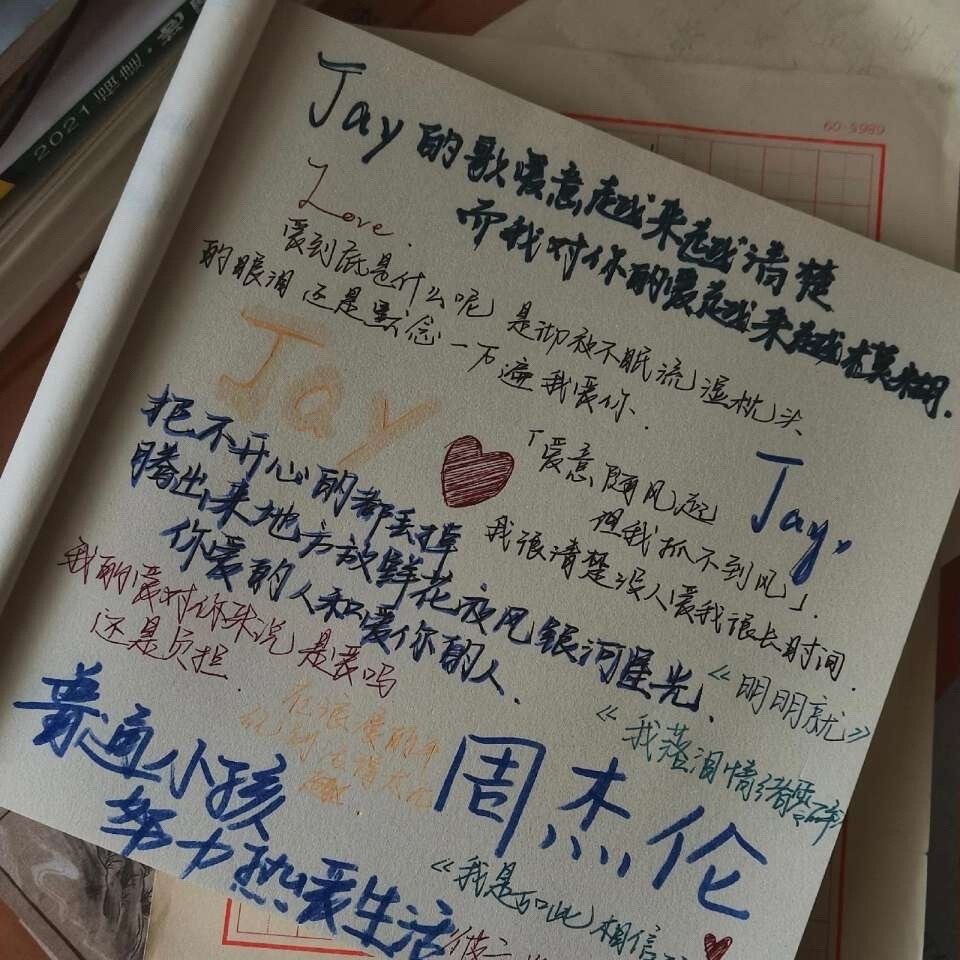 Jay的歌爱意越来越清楚
而我对你的爱越来越模糊.
Love.
爱到底是什么呢 是彻夜不眠流湿枕头
的眼泪 还是默念一万遍我爱你.
Jay
Jay,
「爱意随风起
但我抓不到风」.
我很清楚没人爱我很长时间.
把不开心的都丢掉
腾出来地方放鲜花夜风银河星光、
你爱的人和爱你的人、
我的爱对你来说是爱吗
还是负担.
《明明就》
《我落泪情绪零碎
周杰伦
普通小孩
努力热爱生活
《我是如此相信
2021
60-5989